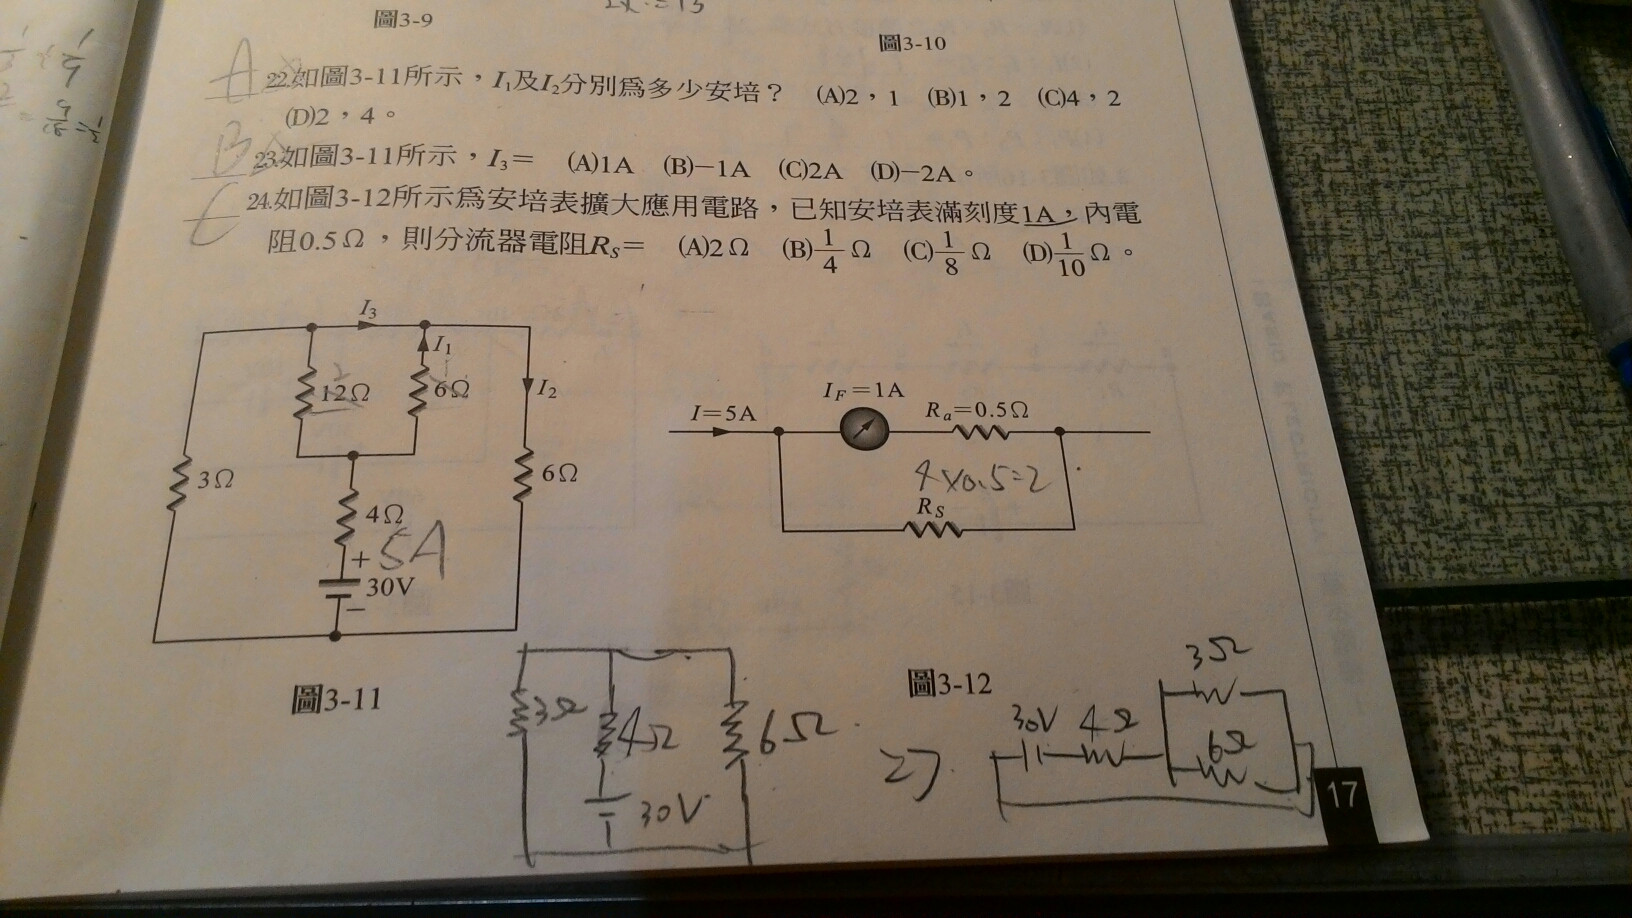 圖3-9
圖3-10
A
22.如圖3-11所示，I₁及I₂分別爲多少安培？ (A)2，1 (B)1，2 (C)4，2
(D)2，4。
B
23.如圖3-11所示，I₃＝ (A)1A (B)−1A (C)2A (D)−2A。
C
24.如圖3-12所示爲安培表擴大應用電路，已知安培表滿刻度1A，內電
阻0.5Ω，則分流器電阻Rs＝ (A)2Ω (B)1/4Ω (C)1/8Ω (D)1/10Ω。
I₃
I₁
12Ω
6Ω
I₂
3Ω
6Ω
4Ω
5A
+
30V
−
圖3-11
I=5A
I_F=1A
Ra=0.5Ω
4×0.5=2
Rs
圖3-12
3Ω
4Ω
6Ω
30V
30V 4Ω
3Ω
6Ω
17